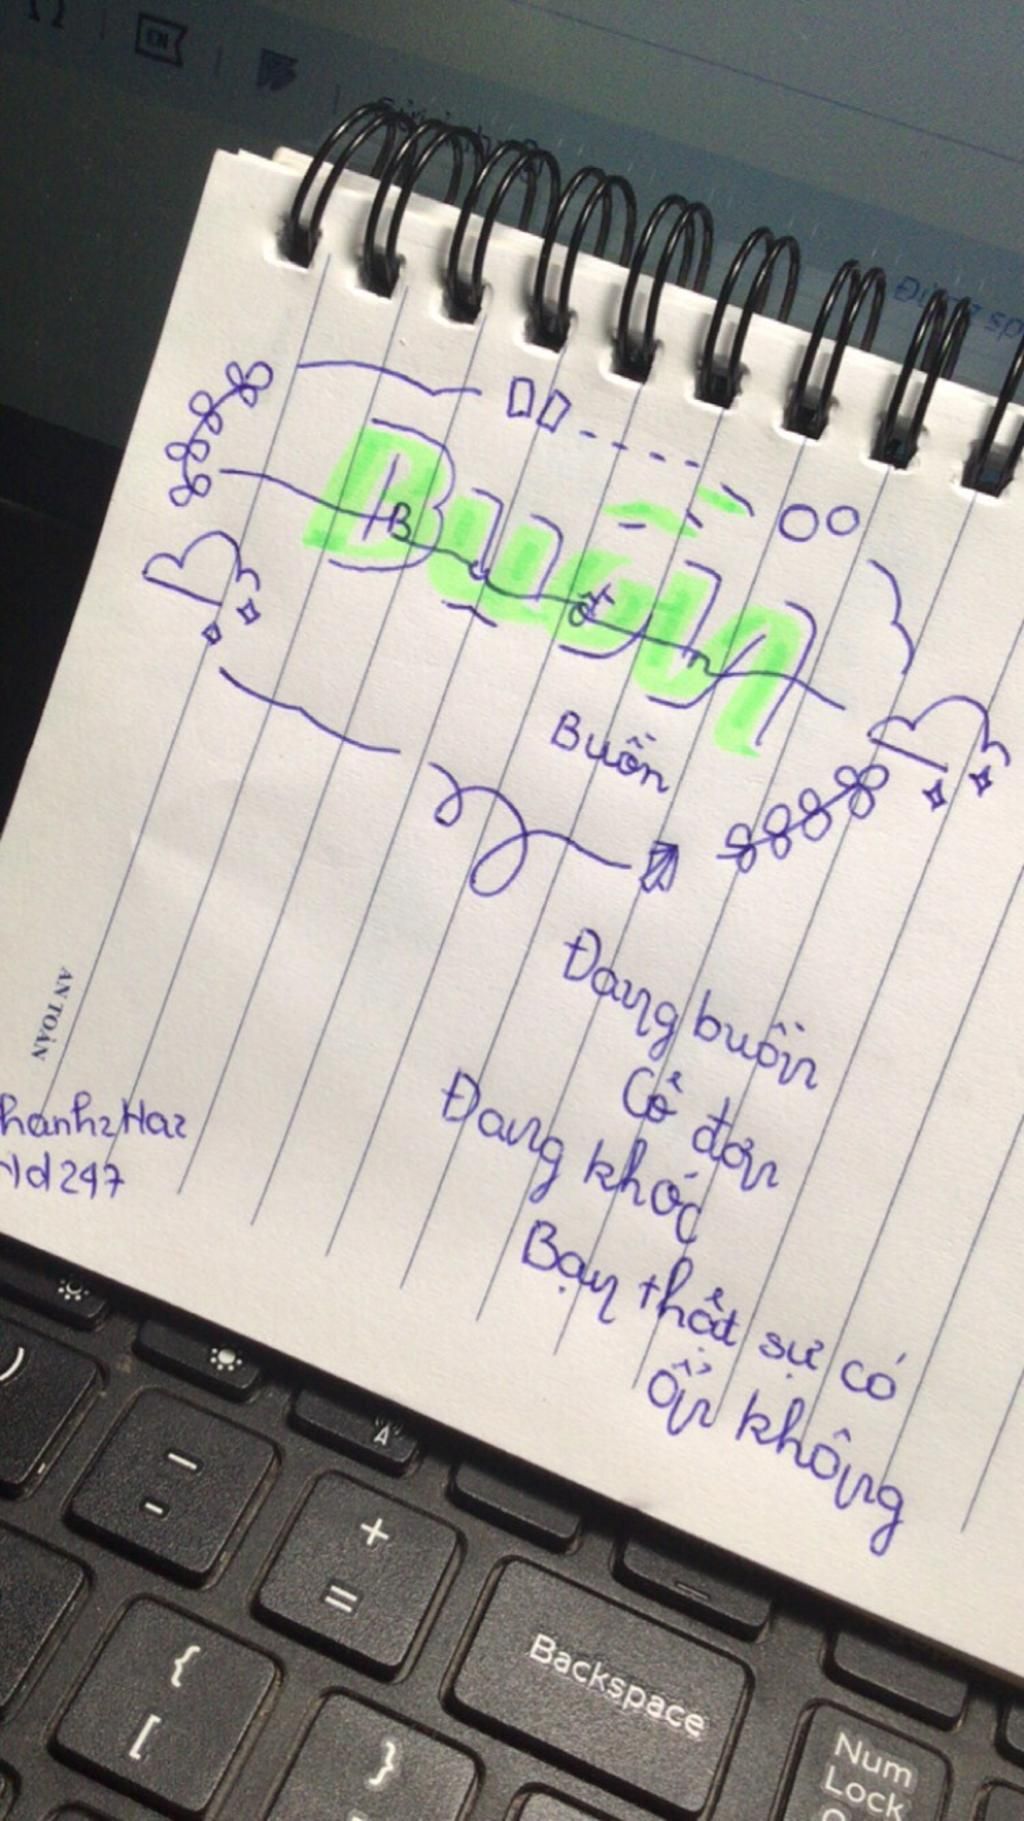 EN
Buồn
Buồn
Buồn
Đang buồn
Cô đơn
Đang khóc
Bạn thật sự có
ổn không
AN TOÀN
hanhzHaz
ld247
+
=
-
{
[
}
Backspace
Num
Lock